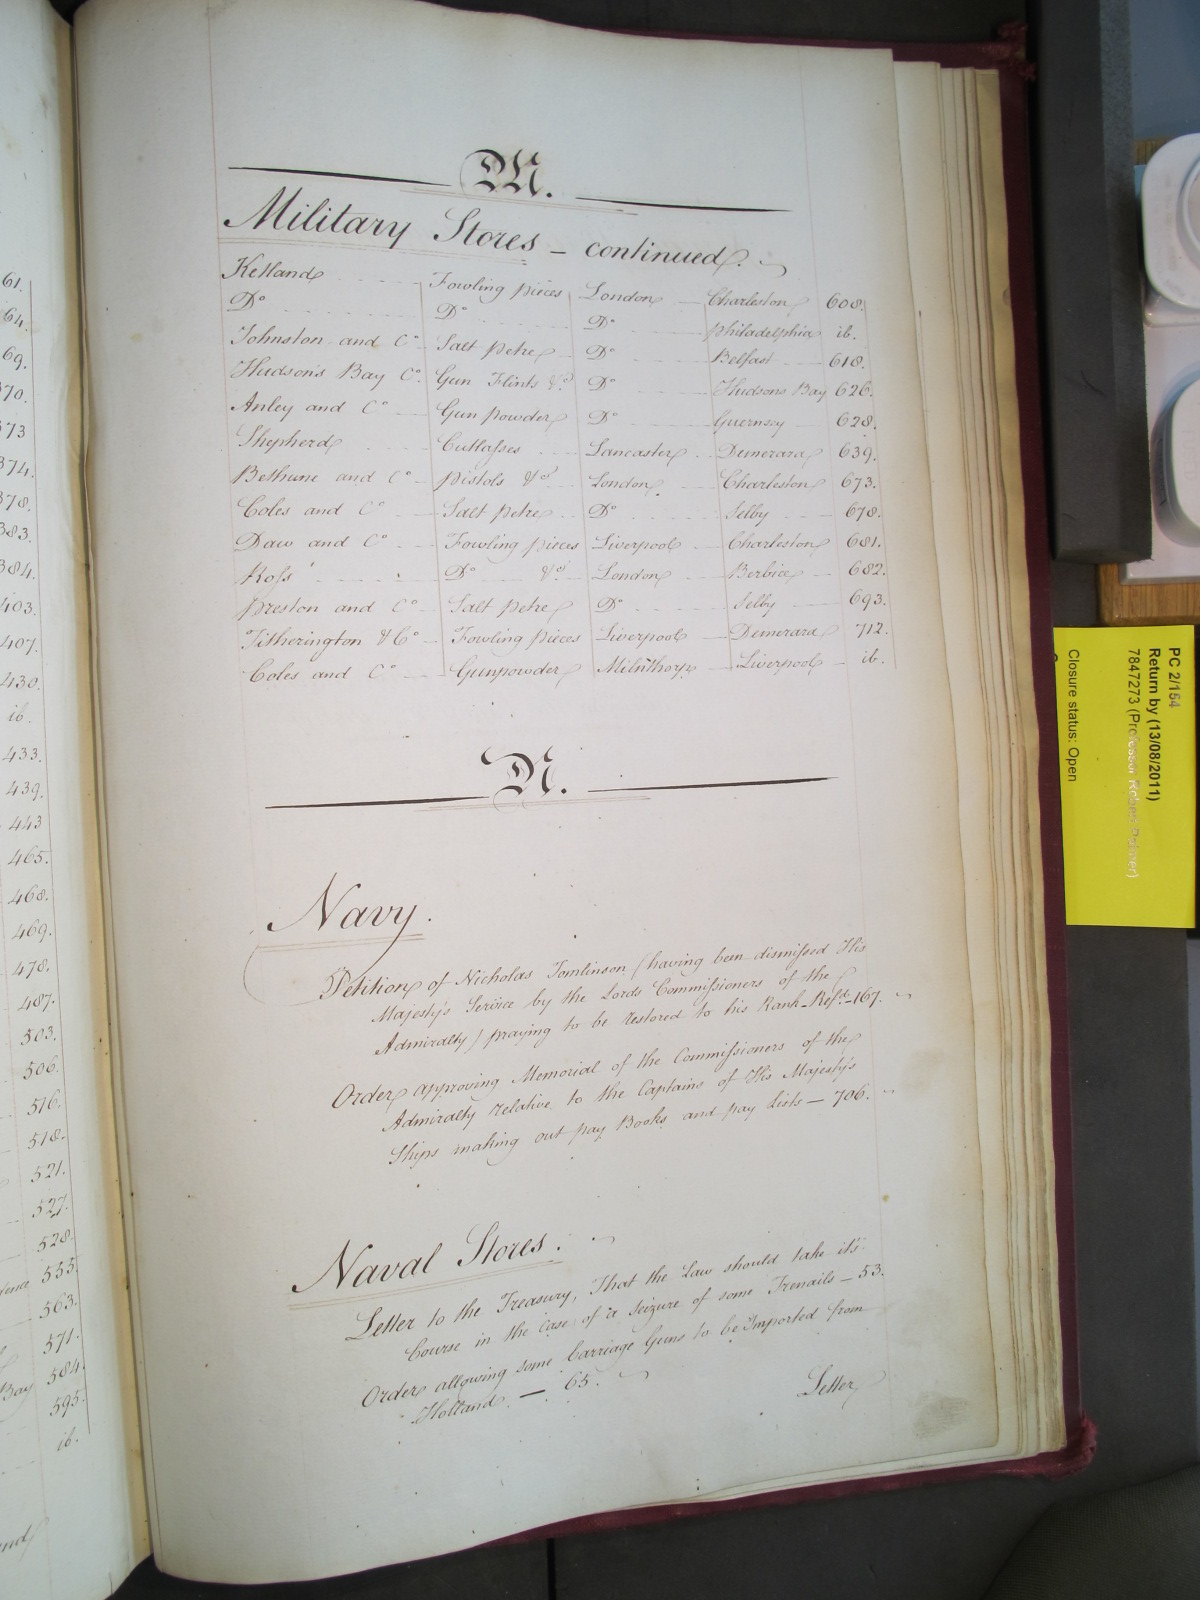 61.
64.
69.
370.
373
374.
378.
383.
384.
403.
407.
430.
ib.
433.
439.
443
465.
468.
469.
478.
487.
503.
506.
516.
518.
521.
527.
528.
555.
563.
571.
Bay 584.
595.
ib.
M.
Military Stores - continued.
Ketland Fowling pieces London Charleston 608.
Do Do Do philadelphia ib.
Johnston and Co Salt petre Do Belfast 618.
Hudson's Bay Co. Gun Flints &c Do Hudsons Bay 626.
Anley and Co Gun powder Do Guernsey 628.
Shepherd Cutlasses Lancaster Demerara 639.
Bethune and Co pistols &c London Charleston 673.
Coles and Co Salt petre Do Selby 678.
Daw and Co Fowling pieces Liverpool Charleston 681.
Ross Do &c London Berbice 682.
preston and Co Salt petre Do Selby 693.
Titherington & Co Fowling pieces Liverpool Demerara 712.
Coles and Co Gunpowder Milnthorpe Liverpool ib.
N.
Navy.
Petition of Nicholas Tomlinson (having been dismissed His
Majesty's Service by the Lords Commissioners of the
Admiralty) praying to be restored to his Rank - Refd. - 167.
Order approving Memorial of the Commissioners of the
Admiralty relative to the Captains of His Majesty's
Ships making out pay Books and pay Lists - 706.
Naval Stores.
Letter to the Treasury, That the Law should take it's
Course in the Case of a Seizure of some Trenails - 53.
Order allowing some Carriage Guns to be Imported from
Holland - 65.
Letter
PC 2/154
Return by (13/08/2011)
7847273 (Professor Robert Palmer)
Closure status: Open